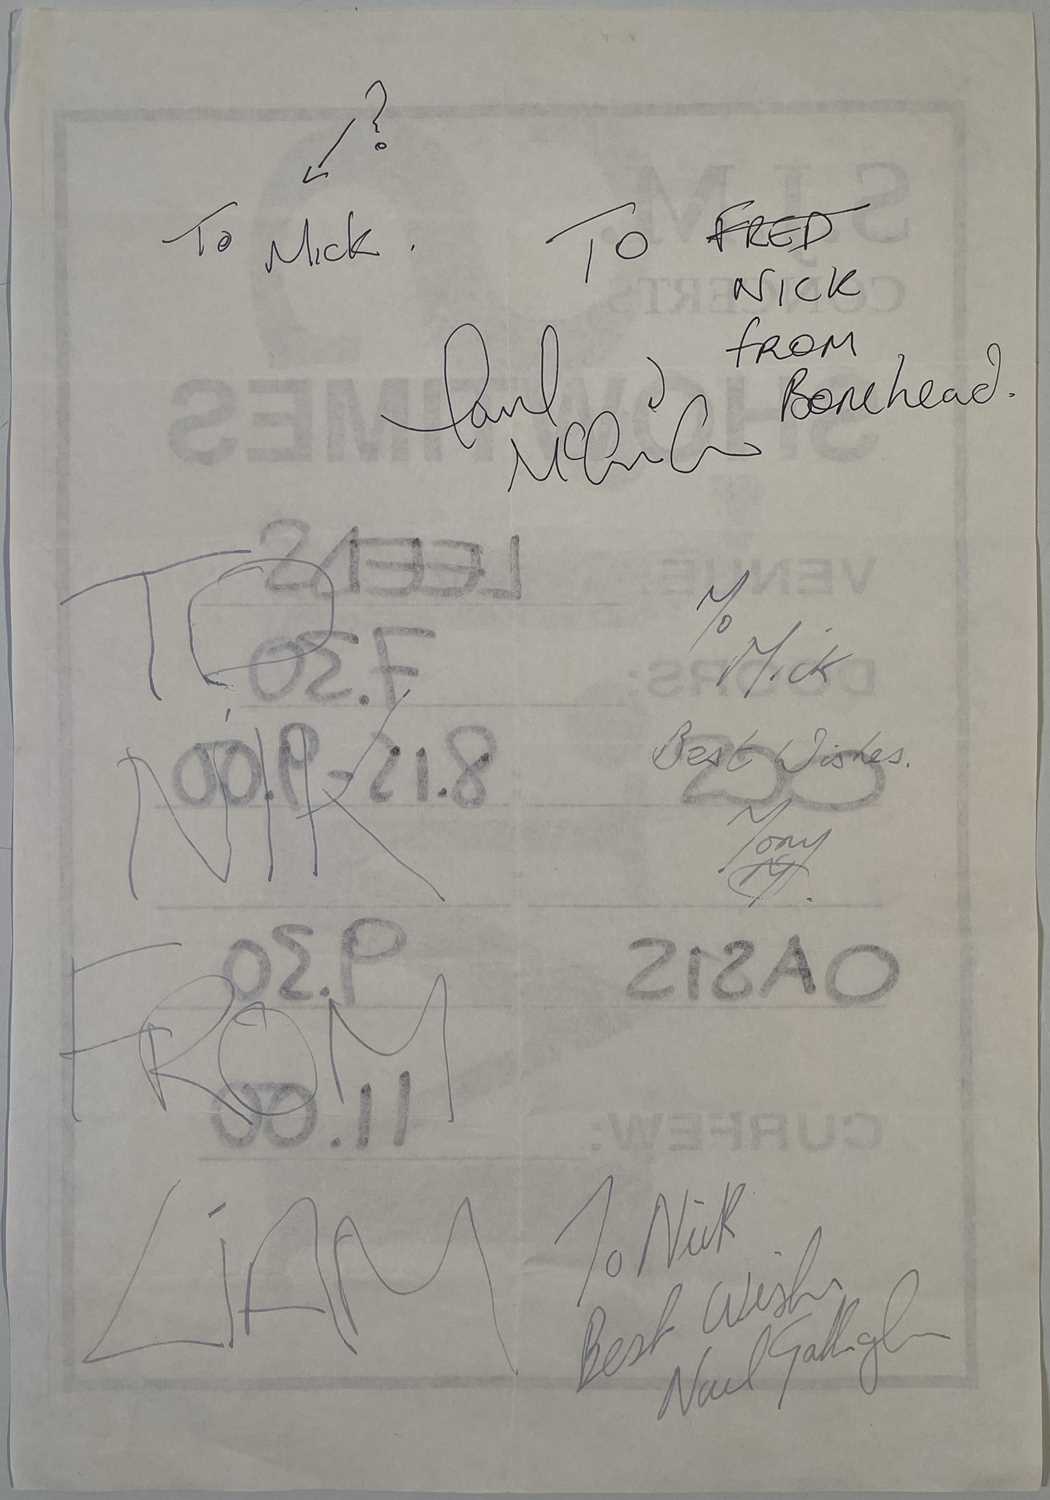 ?
To Mick.
TO FRED
NICK
FROM
Bonehead.
Paul
McGuigan
TO
NIK
FROM
LiAM
To
Mick
Best Wishes.
Tony
M.
To Nick
Best Wishes
Noel Gallagher
S.J.M.
CONCERTS
SHOWTIMES
VENUE: LEEDS
DOORS: 7.30
OCS 8.15-9.00
OASIS 9.30
CURFEW: 11.00